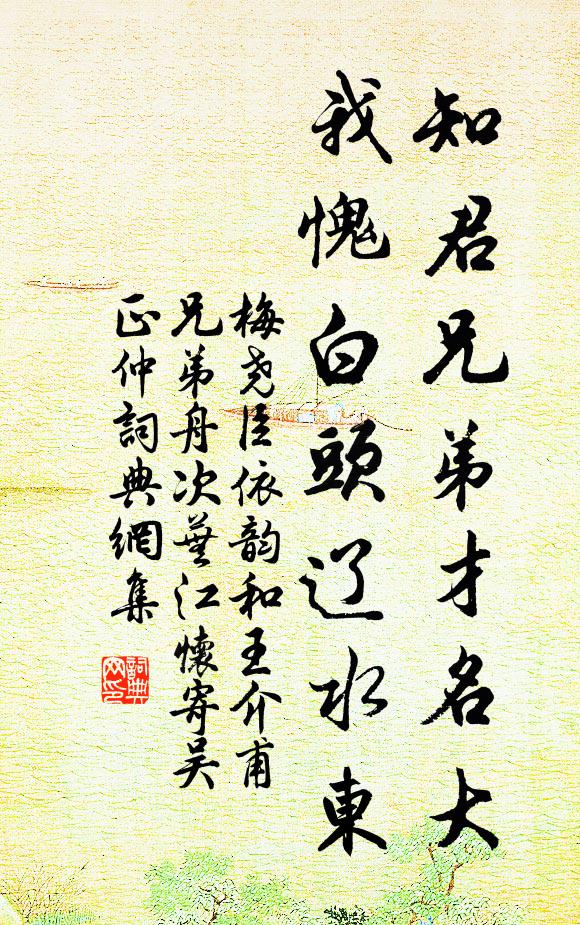 知君兄弟才名大
我愧白頭辽水東
梅尧臣依韵和王介甫
兄弟舟次蕪江懷寄吴
正仲詞典網集
詞典
网印